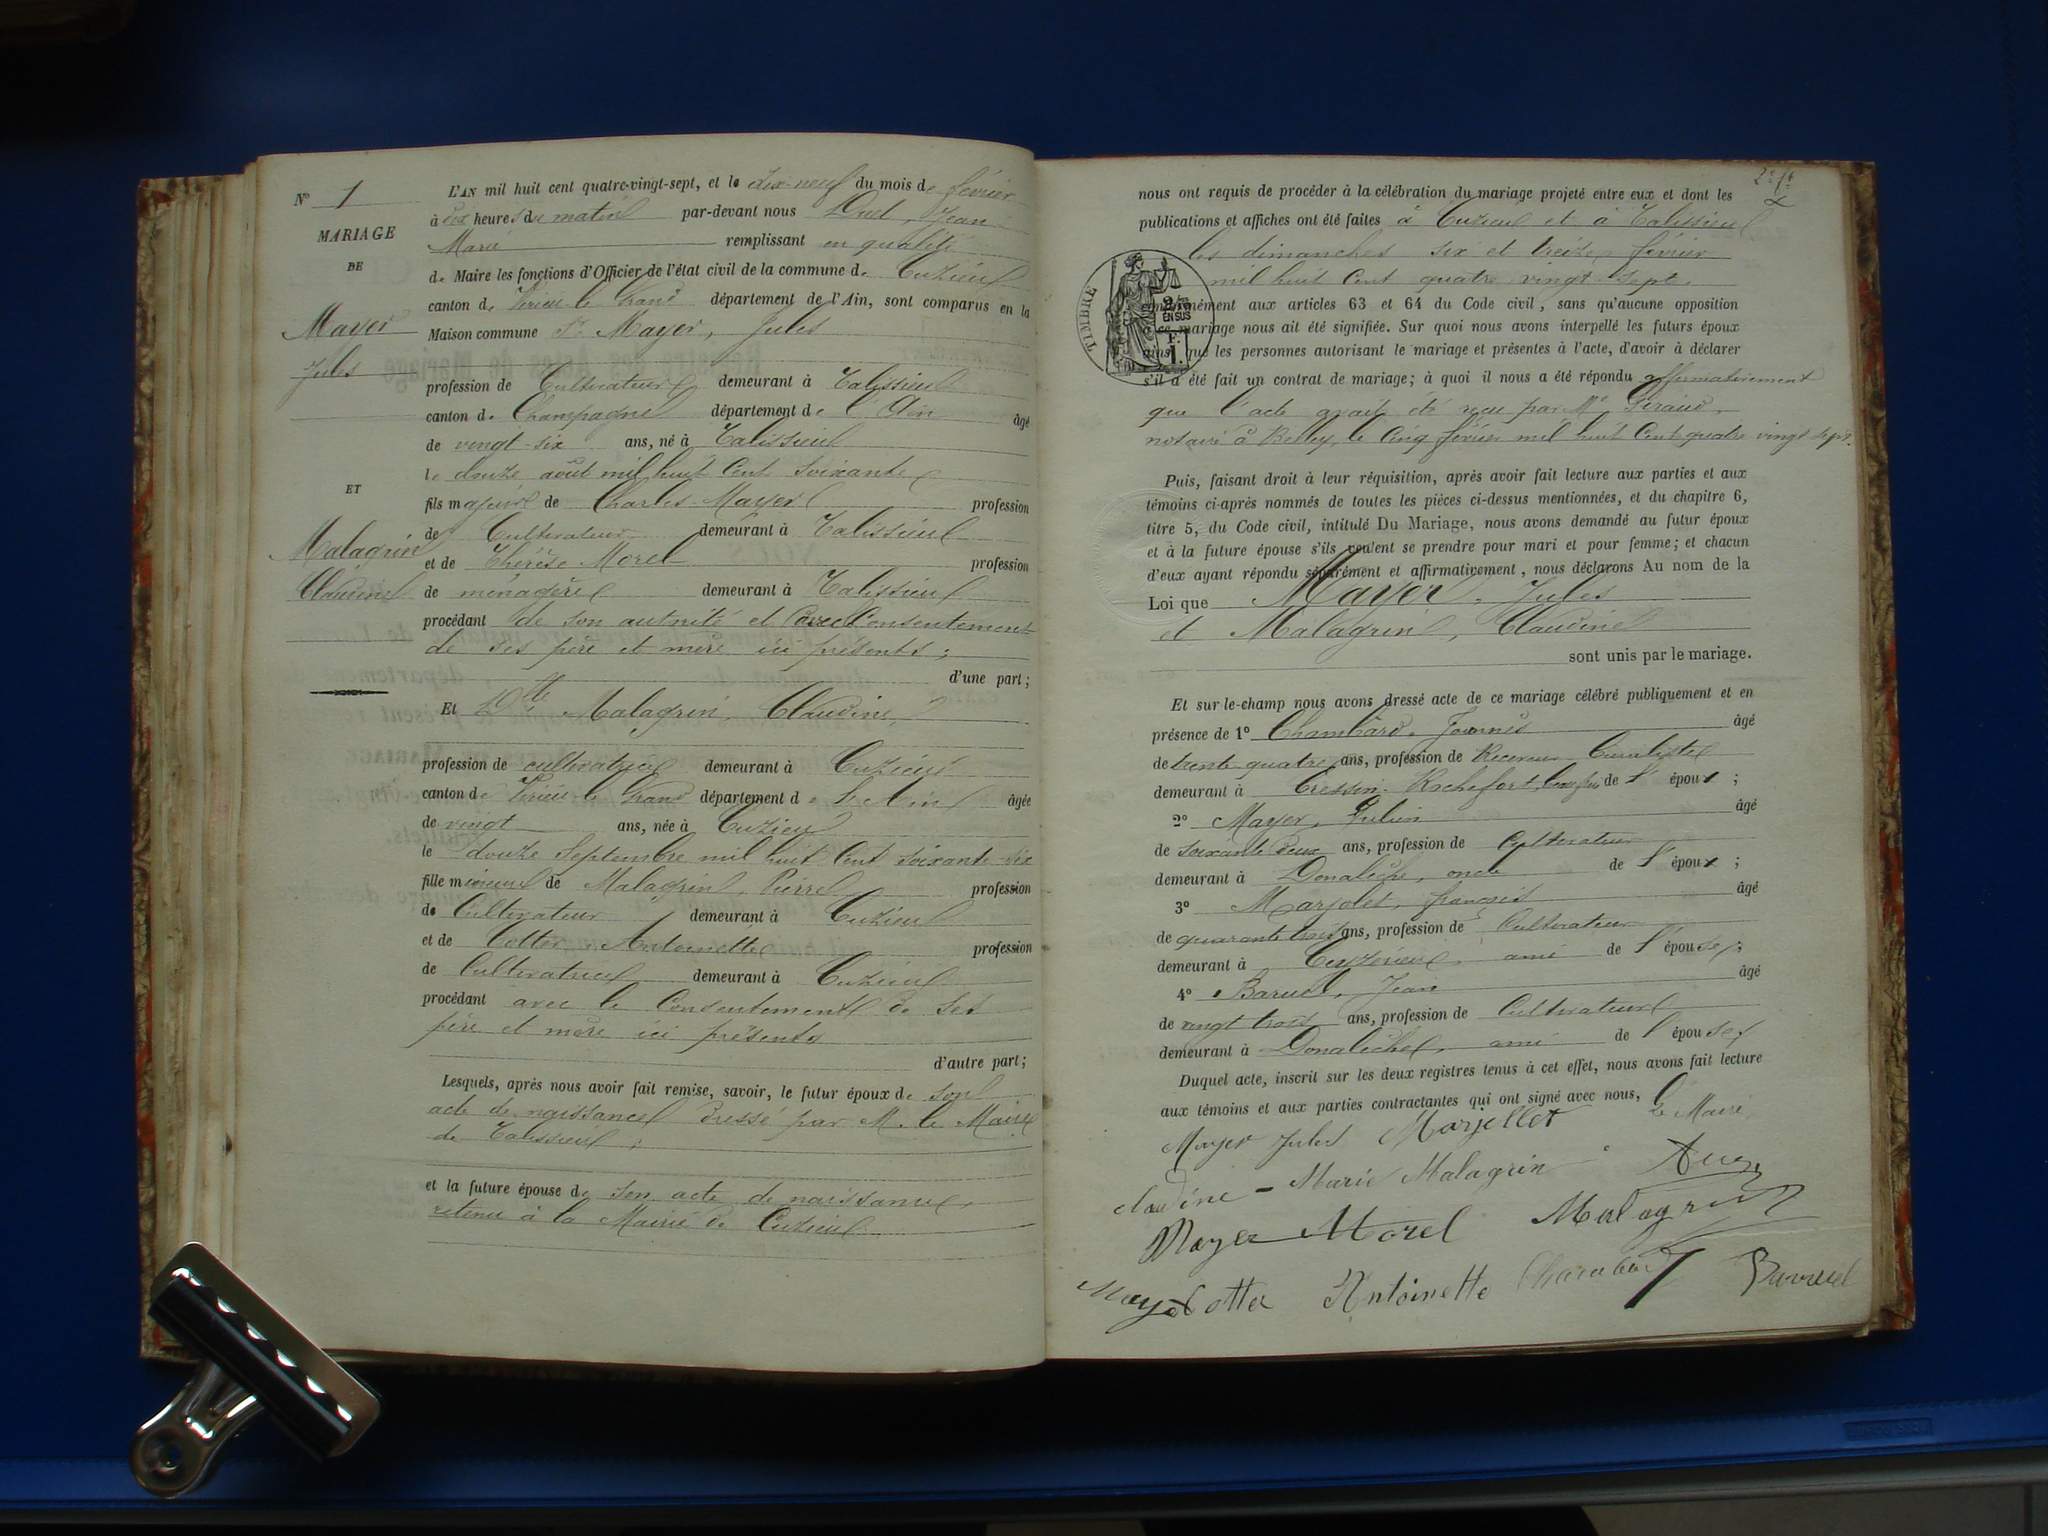 N° 1
MARIAGE
DE
Mayer
Jules
ET
Malagrin
Claudine
L'AN mil huit cent quatre-vingt-sept, et le dix-neuf du mois de février
à dix heures du matin par-devant nous Jean
Marie remplissant en qualité
de Maire les fonctions d'Officier de l'état civil de la commune de Cuzieu
canton de Virieu-le-Grand département de l'Ain, sont comparus en la
Maison commune Sr Mayer, Jules
profession de Cultivateur demeurant à Talissieu
canton de Champagne département de l'Ain âgé
de vingt-six ans, né à Talissieu
le douze août mil huit cent soixante
fils majeur de Charles Mayer profession
de Cultivateur demeurant à Talissieu
et de Thérèse Morel profession
de ménagère demeurant à Talissieu
procédant de son autorité et avec Consentement
de ses père et mère ici présents ;
d'une part ;
Et Dlle Malagrin, Claudine,
profession de cultivatrice demeurant à Cuzieu
canton de Virieu le Grand département de l'Ain âgée
de vingt ans, née à Cuzieu
le douze Septembre mil huit Cent soixante-six
fille mineure de Malagrin, Pierre profession
de Cultivateur demeurant à Cuzieu
et de Cotter Antoinette profession
de Cultivatrice demeurant à Cuzieu
procédant avec le Consentement de ses
père et mère ici présents
d'autre part ;
Lesquels, après nous avoir fait remise, savoir, le futur époux de son
acte de naissance dressé par M. le Maire
de Talissieu ;
et la future épouse de son acte de naissance,
retenu à la Mairie de Cuzieu
nous ont requis de procéder à la célébration du mariage projeté entre eux et dont les
publications et affiches ont été faites à Cuzieu et à Talissieu
les dimanches six et treize février
mil huit Cent quatre vingt sept.
TIMBRE
2/10
EN SUS
F.
1.
conformément aux articles 63 et 64 du Code civil, sans qu'aucune opposition
à ce mariage nous ait été signifiée. Sur quoi nous avons interpellé les futurs époux
ainsi que les personnes autorisant le mariage et présentes à l'acte, d'avoir à déclarer
s'il a été fait un contrat de mariage ; à quoi il nous a été répondu affirmativement
que l'acte avait été reçu par Me Giraud,
notaire à Belley, le Cinq février mil huit Cent quatre vingt sept.
Puis, faisant droit à leur réquisition, après avoir fait lecture aux parties et aux
témoins ci-après nommés de toutes les pièces ci-dessus mentionnées, et du chapitre 6,
titre 5, du Code civil, intitulé Du Mariage, nous avons demandé au futur époux
et à la future épouse s'ils veulent se prendre pour mari et pour femme ; et chacun
d'eux ayant répondu séparément et affirmativement, nous déclarons Au nom de la
Loi que Mayer, Jules
et Malagrin, Claudine
sont unis par le mariage.
Et sur-le-champ nous avons dressé acte de ce mariage célébré publiquement et en
présence de 1° Chambard, Joannès âgé
de trente-quatre ans, profession de Receveur Buraliste
demeurant à Cressin-Rochefort, de l'époux ;
2° Mayer, Julien âgé
de soixante deux ans, profession de Cultivateur
demeurant à Donalèche, oncle de l'époux ;
3° Marjolet, françois âgé
de quarante trois ans, profession de Cultivateur
demeurant à Ceyzérieu, ami de l'épouse ;
4° Jean âgé
de vingt trois ans, profession de Cultivateur
demeurant à Donalèche, ami de l'épouse,
Duquel acte, inscrit sur les deux registres tenus à cet effet, nous avons fait lecture
aux témoins et aux parties contractantes qui ont signé avec nous,
Le Maire,
Mayer Jules Marjollet
claudine - Marie Malagrin
Mayer Morel Malagrin
Mayer Cotter Antoinette